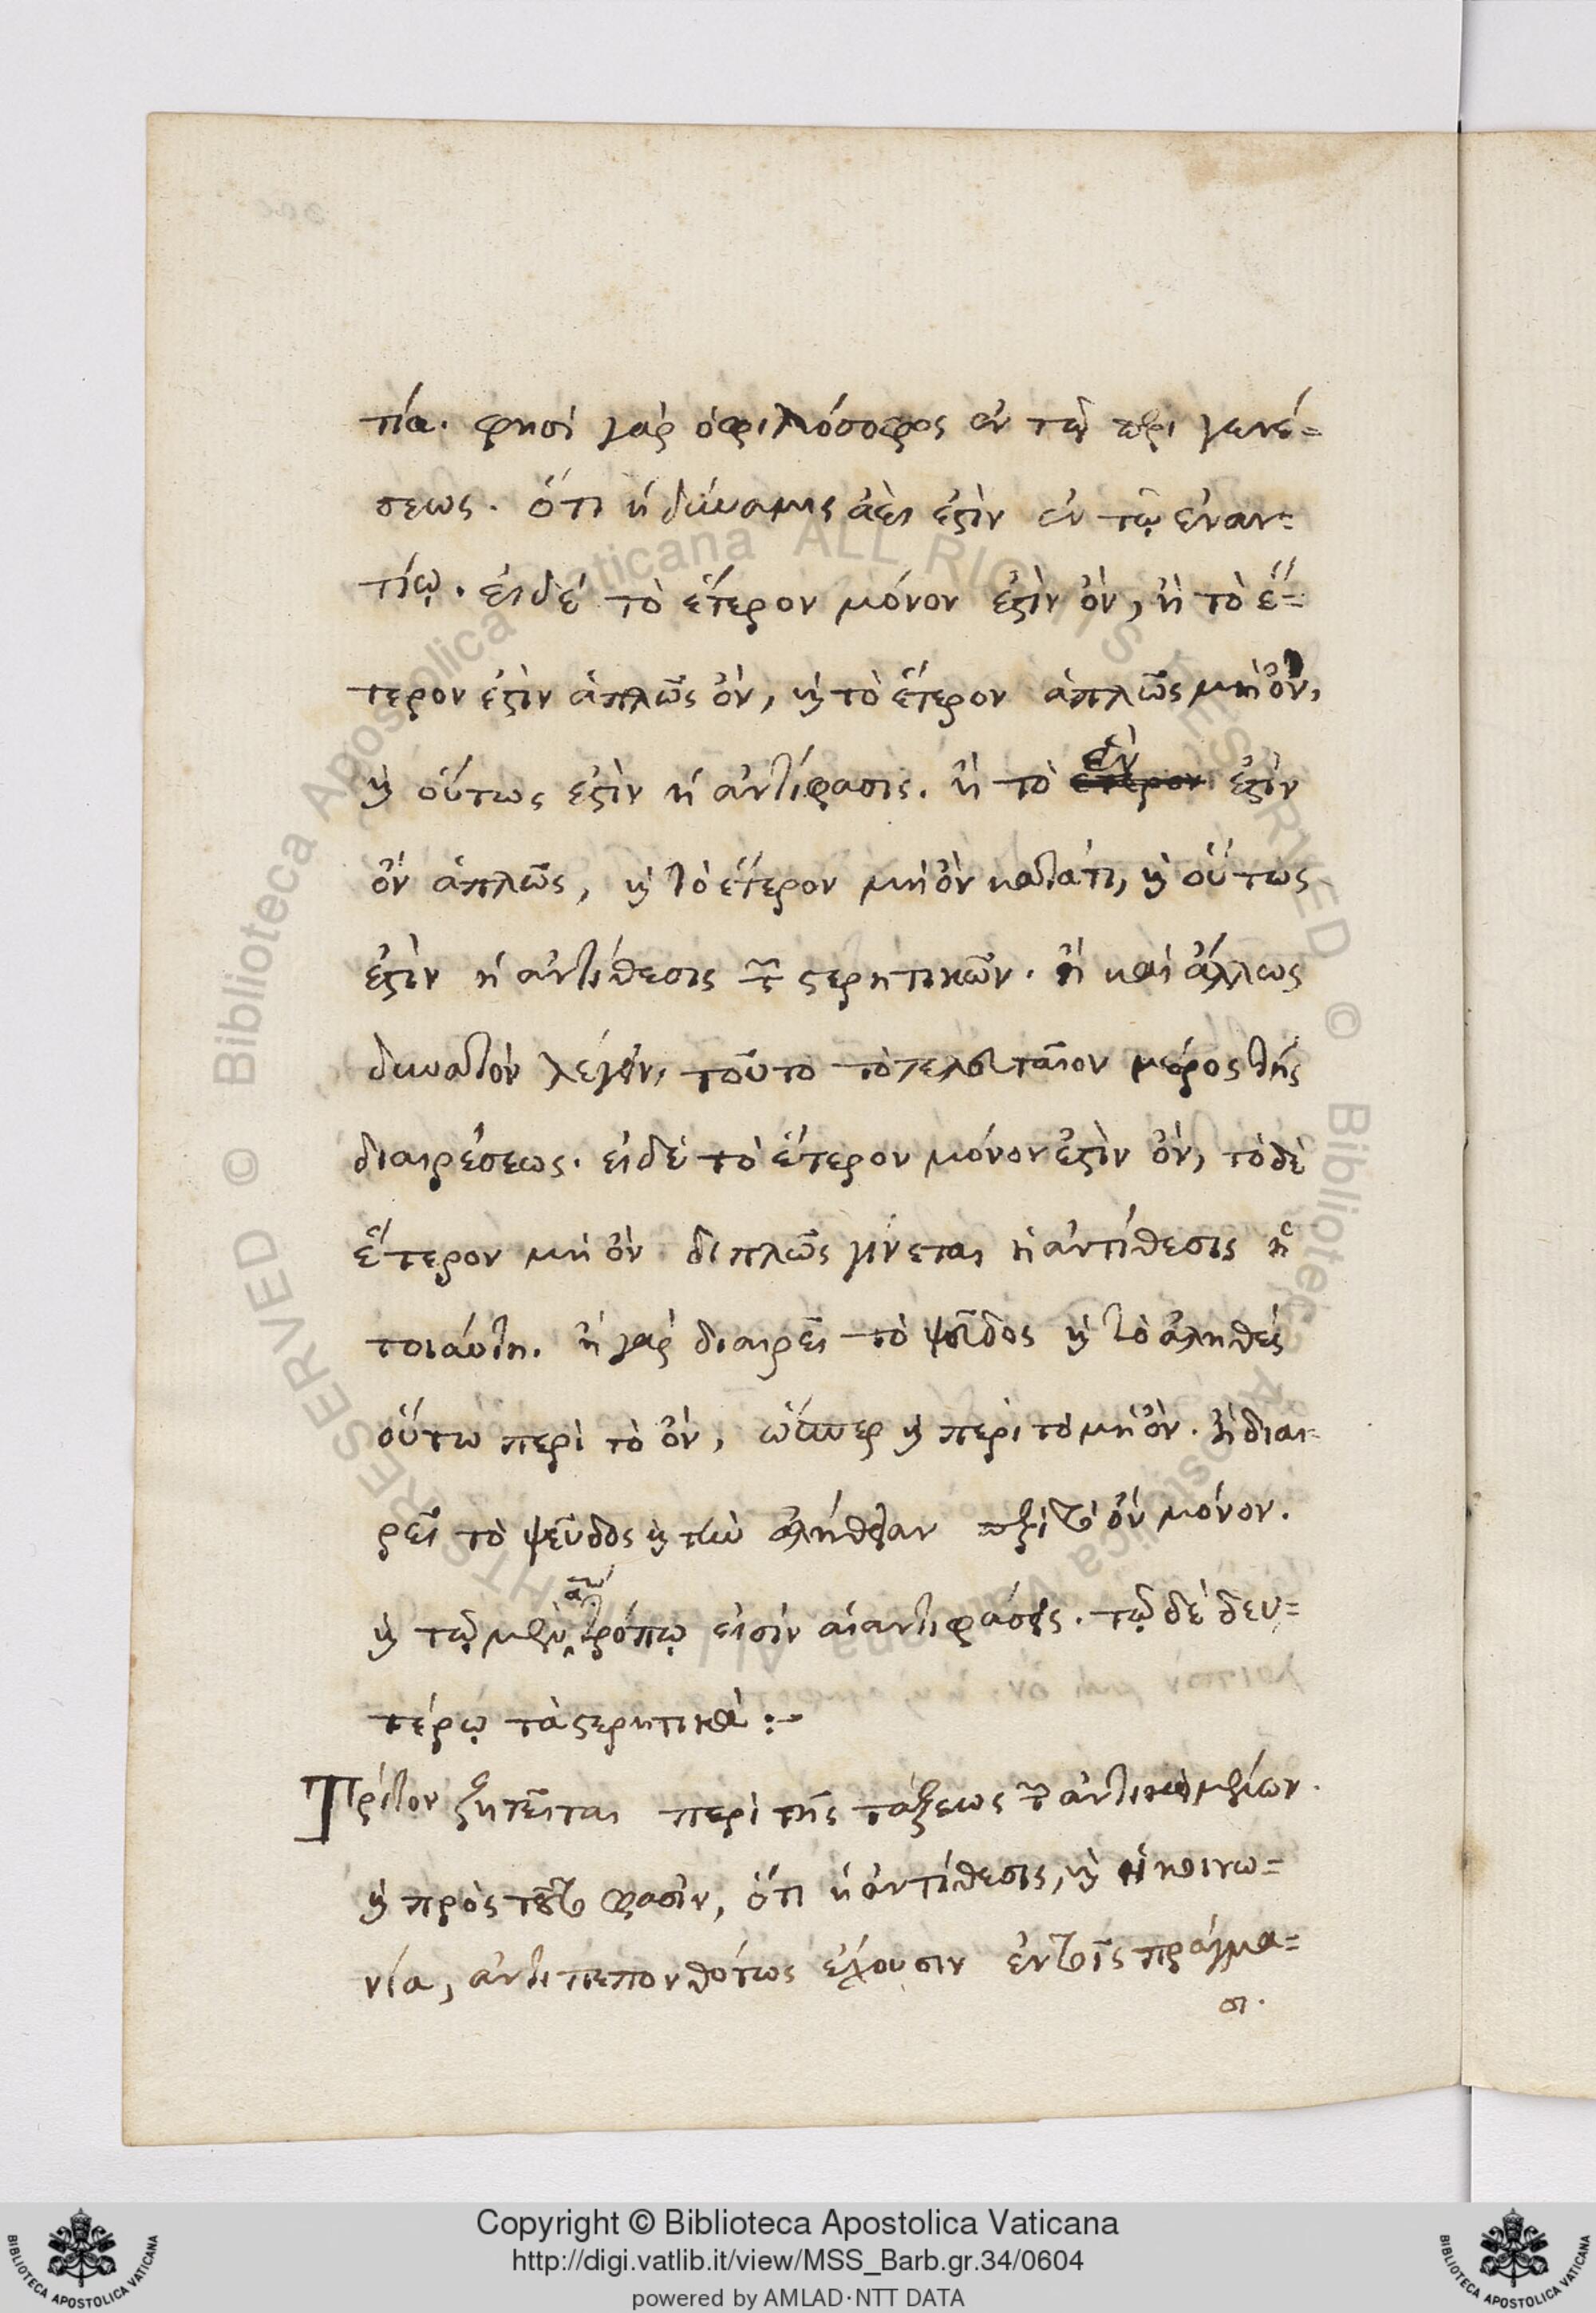 τία. φησὶ γὰρ ὁ φιλόσοφος ἐν τῷ περὶ γενέ=
σεως. ὅτι ἡ δύναμις ἀεὶ ἐστὶν ἐν τῷ ἐναν=
τίῳ. εἰ δὲ τὸ ἕτερον μόνον ἐστὶν ὄν, ἢ τὸ ἕ=
τερον ἐστὶν ἁπλῶς ὄν, καὶ τὸ ἕτερον ἁπλῶς μὴ ὄν,
καὶ οὕτως ἐστὶν ἡ ἀντίφασις. ἢ τὸ ἓν ἐστὶν
ὂν ἁπλῶς, καὶ τὸ ἕτερον μὴ ὂν κατά τι, καὶ οὕτως
ἐστὶν ἡ ἀντίθεσις τῶν στερητικῶν. ἢ καὶ ἄλλως
δυνατὸν λέγειν, τοῦτο τὸ τελευταῖον μέρος τῆς
διαιρέσεως. εἰ δὲ τὸ ἕτερον μόνον ἐστὶν ὄν, τὸ δὲ
ἕτερον μὴ ὂν διπλῶς γίνεται ἡ ἀντίθεσις ἡ
τοιαύτη. ἢ γὰρ διαιρεῖ τὸ ψεῦδος καὶ τὸ ἀληθὲς
οὕτω περὶ τὸ ὄν, ὥσπερ καὶ περὶ τὸ μὴ ὄν. ἢ διαι=
ρεῖ τὸ ψεῦδος καὶ τὴν ἀλήθειαν περὶ τὸ ὂν μόνον.
καὶ τῷ μὲν αῳ τρόπῳ εἰσὶν αἱ ἀντιφάσεις. τῷ δὲ δευ=
τέρῳ τὰ στερητικά :~
Τρίτον ζητεῖται περὶ τῆς τάξεως τῶν ἀντικειμένων.
καὶ πρὸς τοῦτο φασὶν, ὅτι ἡ ἀντίθεσις, καὶ ἡ κοινω=
νία, ἀντιπεπονθότως ἔχουσιν ἐν τοῖς πράγμα=
σι.
Copyright © Biblioteca Apostolica Vaticana
http://digi.vatlib.it/view/MSS_Barb.gr.34/0604
powered by AMLAD·NTT DATA